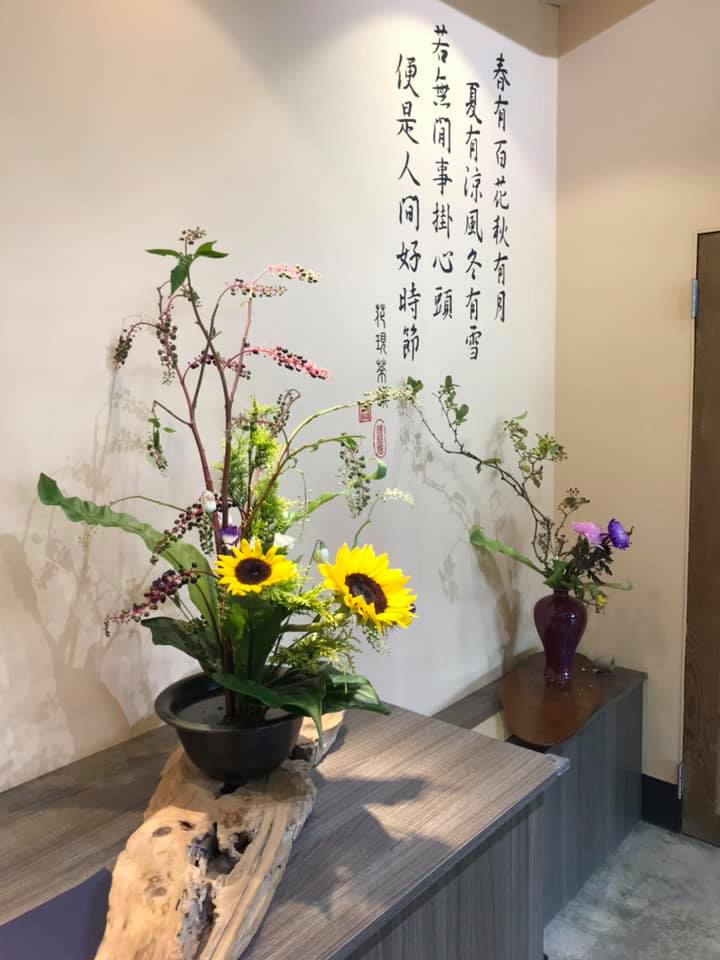 春有百花秋有月
夏有涼風冬有雪
若無閒事掛心頭
便是人间好時節
花現茶